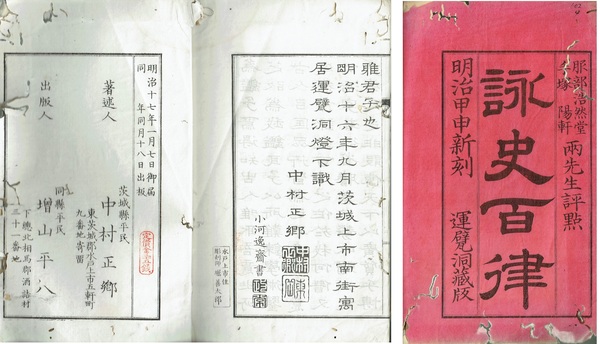 服部浩然堂
手塚　陽軒
兩先生評點
詠史百律
明治甲申新刻
運甓洞藏版
雅君子也
明治十六年九月茨城上市南街寓
居運甓洞燈下識
中村正鄉
小河逸齋書
水戶上市住
明治十七年一月七日御届
同年同月十八日出板
著述人
茨城縣平民
中村正鄉
東茨城郡水戶上市五軒町
九番地寄留
出版人
同縣平民
增山平八
下總北相馬郡酒詰村
三十一番地